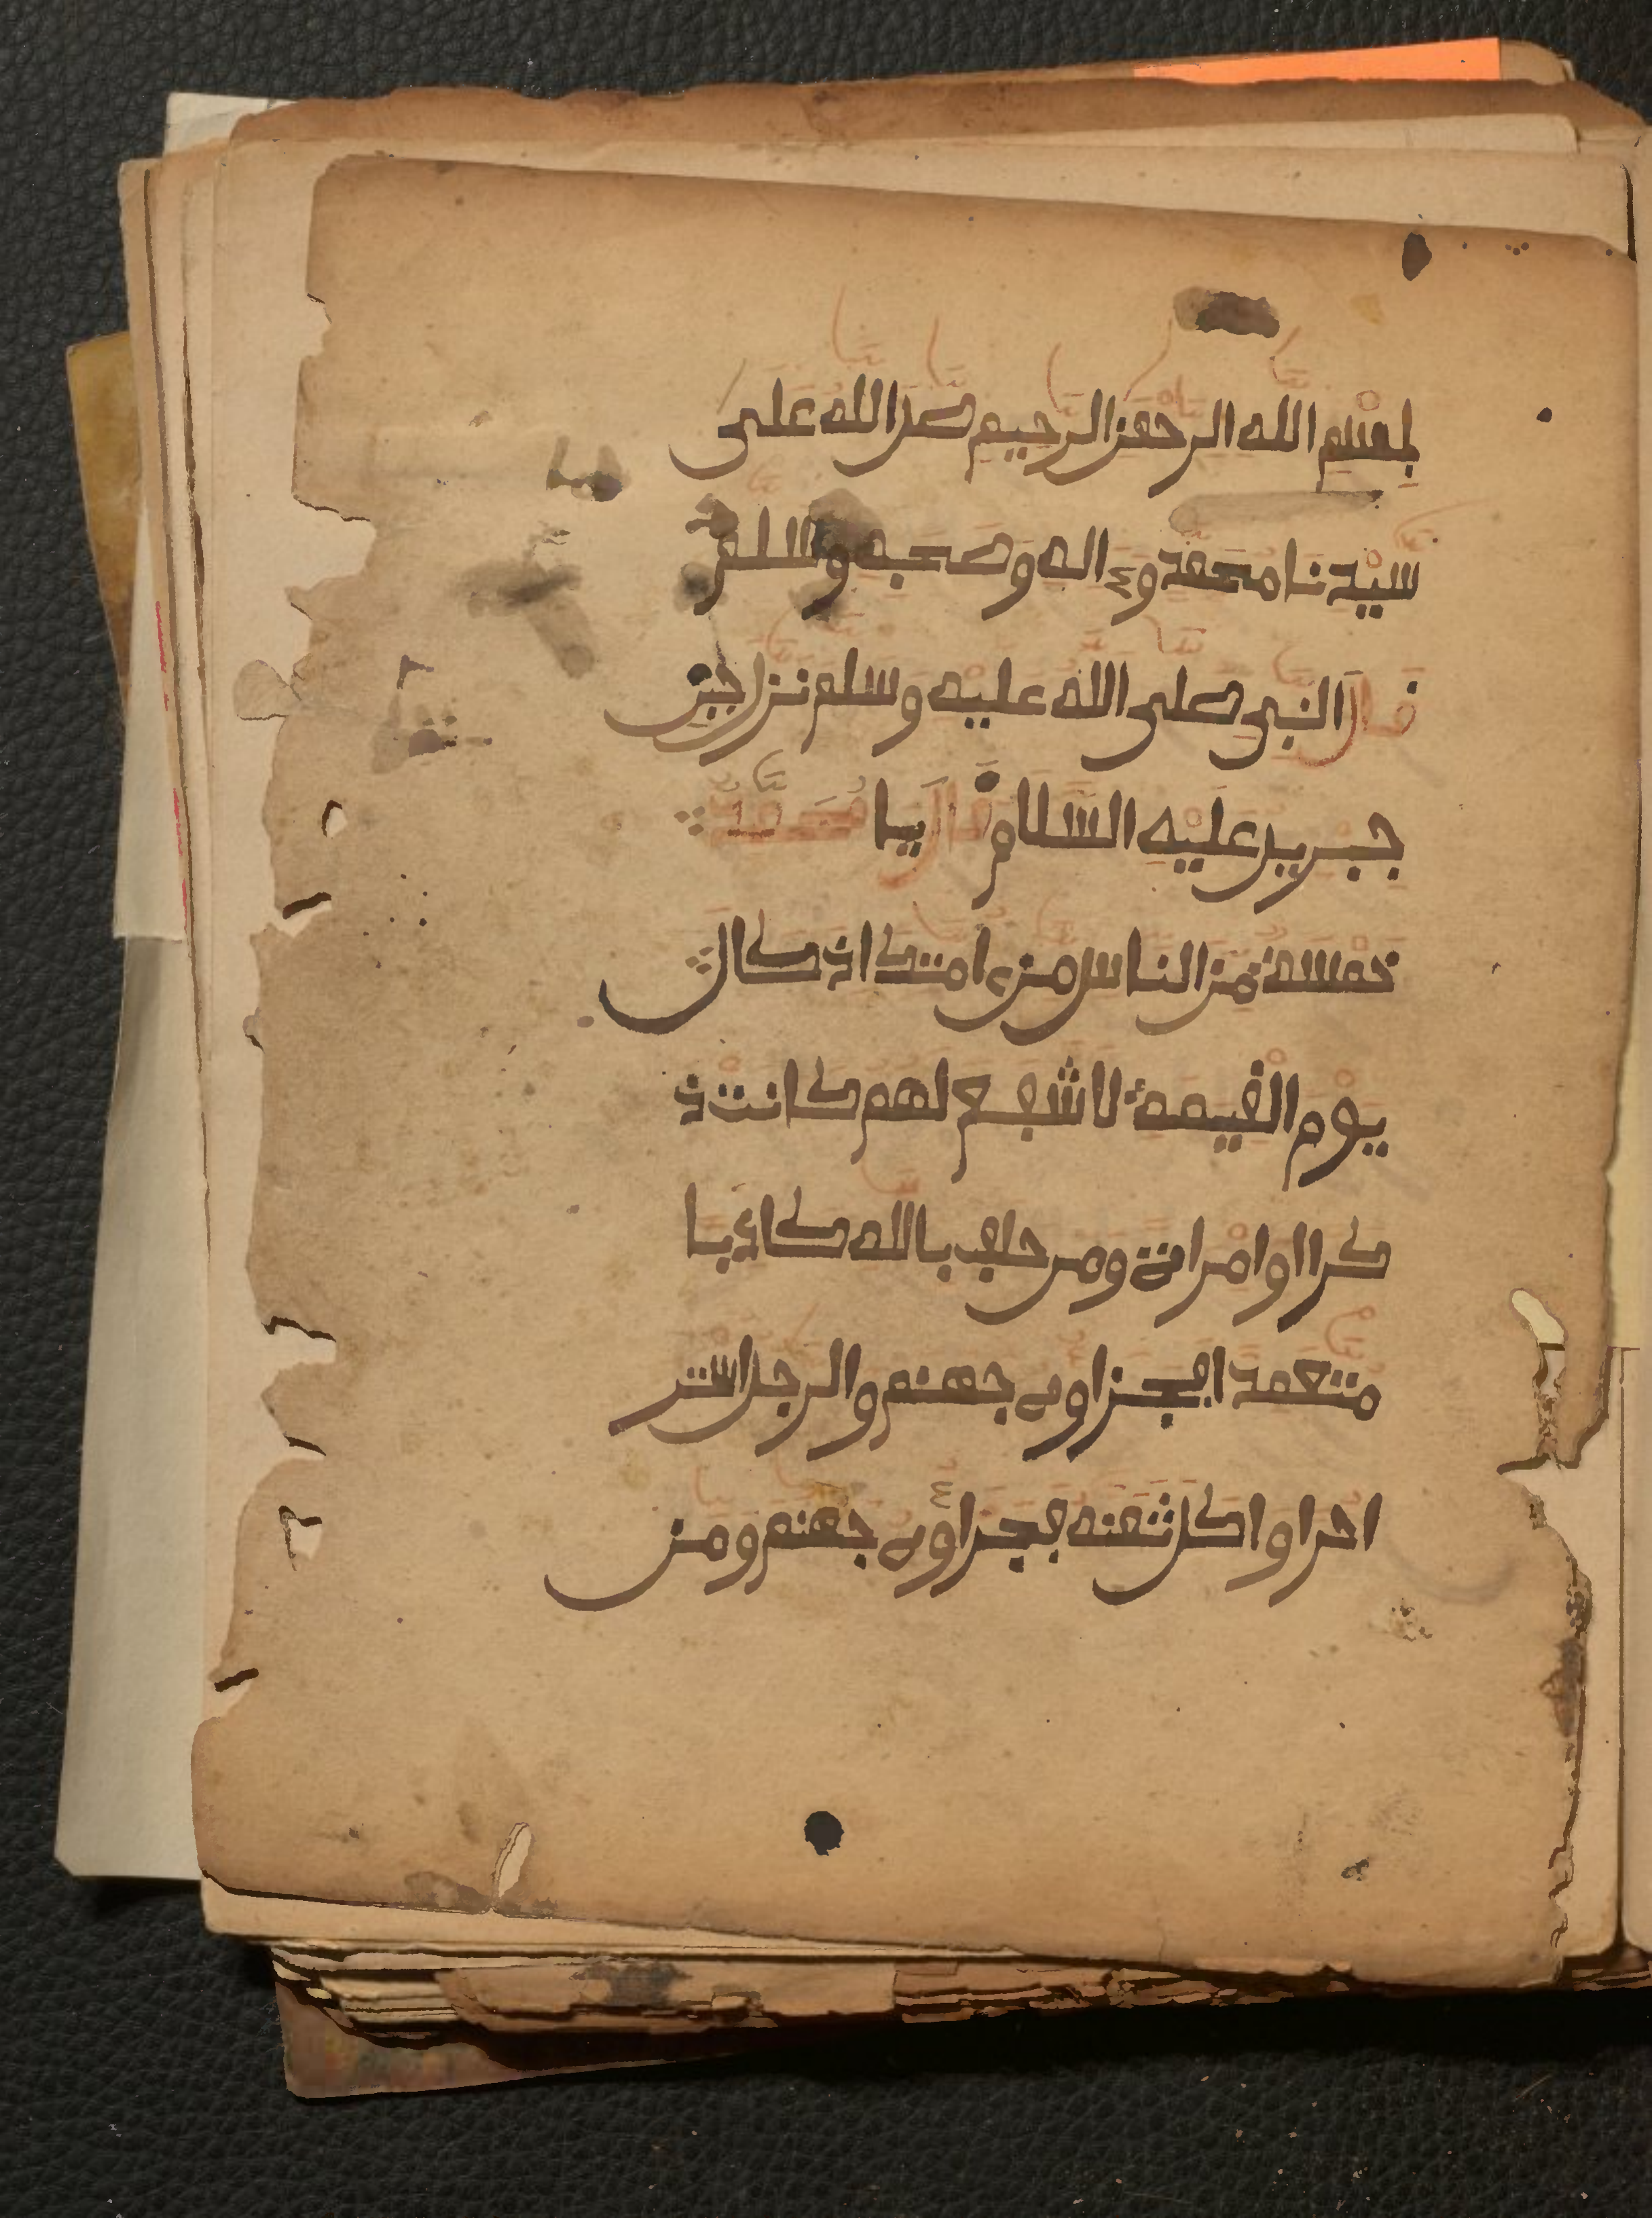 بسم الله الرحمن الرحيم صل الله على
سيدنا محمد وء اله وصحبه وسلم
قال النبي صلى الله عليه وسلم نزل
جبريل عليه السلام قال يا محمد
خمسة من الناس من امتك اذ كان
يوم القيمة لا شبع لهم كانت ذ
كرا او امراة ومن حلف بالله كاذبا
متعمدا فجزاوه جهنم والرجل اشتر
احرا واكل ثمنه فجزاوه جهنم ومن